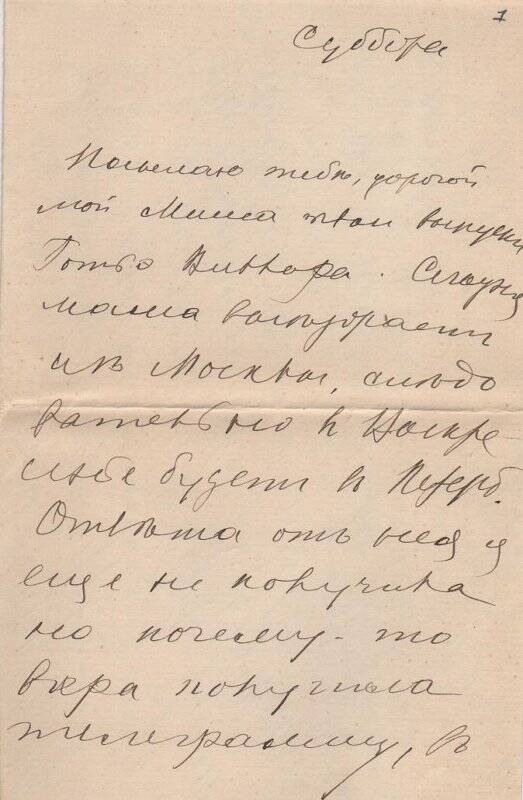 1
Суббота
Посылаю тебѣ, дорогой
мой Миша твои выпуски
Готье Виктора. Сегодня
мама выѣзжаетъ
изъ Москвы, слѣдо
вательно в Воскре-
сенье будетъ в Петерб.
Отвѣта отъ нея я
еще не получила
но почему-то
вчера получила
телеграмму, в